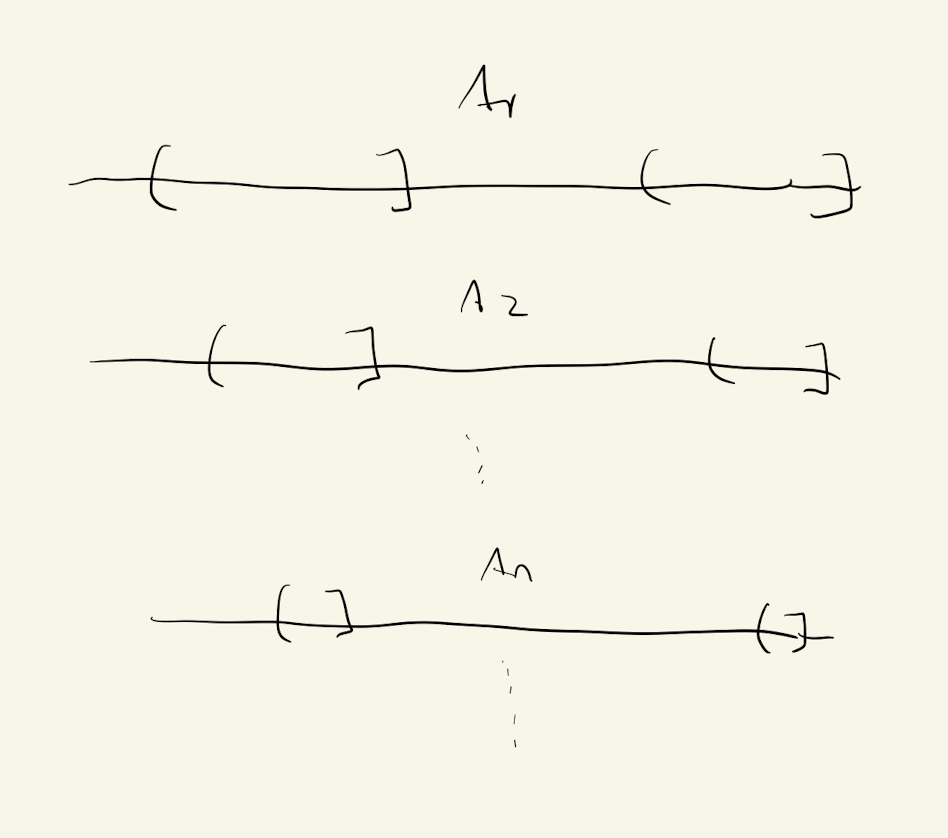 A₁
( ] ( ]
A2
( ] ( ]
An
( ] ( ]